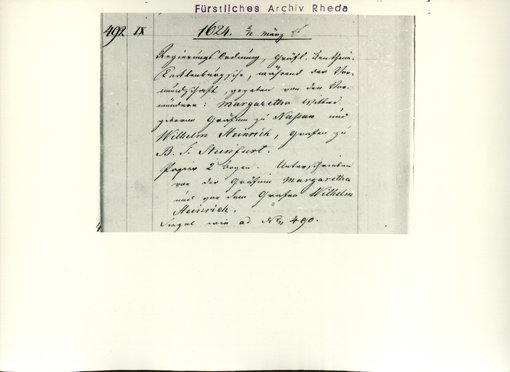 Fürstliches Archiv Rheda
492 IX 1624. 2/12 März
Regierungs Ordnung, Gräfl. Bentheim-
Tecklenburgische, während der Vor-
mundschaft, gegeben von den Vor-
mündern: Margaretha Wittwe
geborene Gräfin zu Nassau und
Wilhelm Heinrich, Grafen zu
B. T. Steinfurt.
Papier 2 Bogen. Unterschrieben
von der Gräfin Margaretha
und von dem Grafen Wilhelm
Heinrich.
Siegel wie ad No 490.